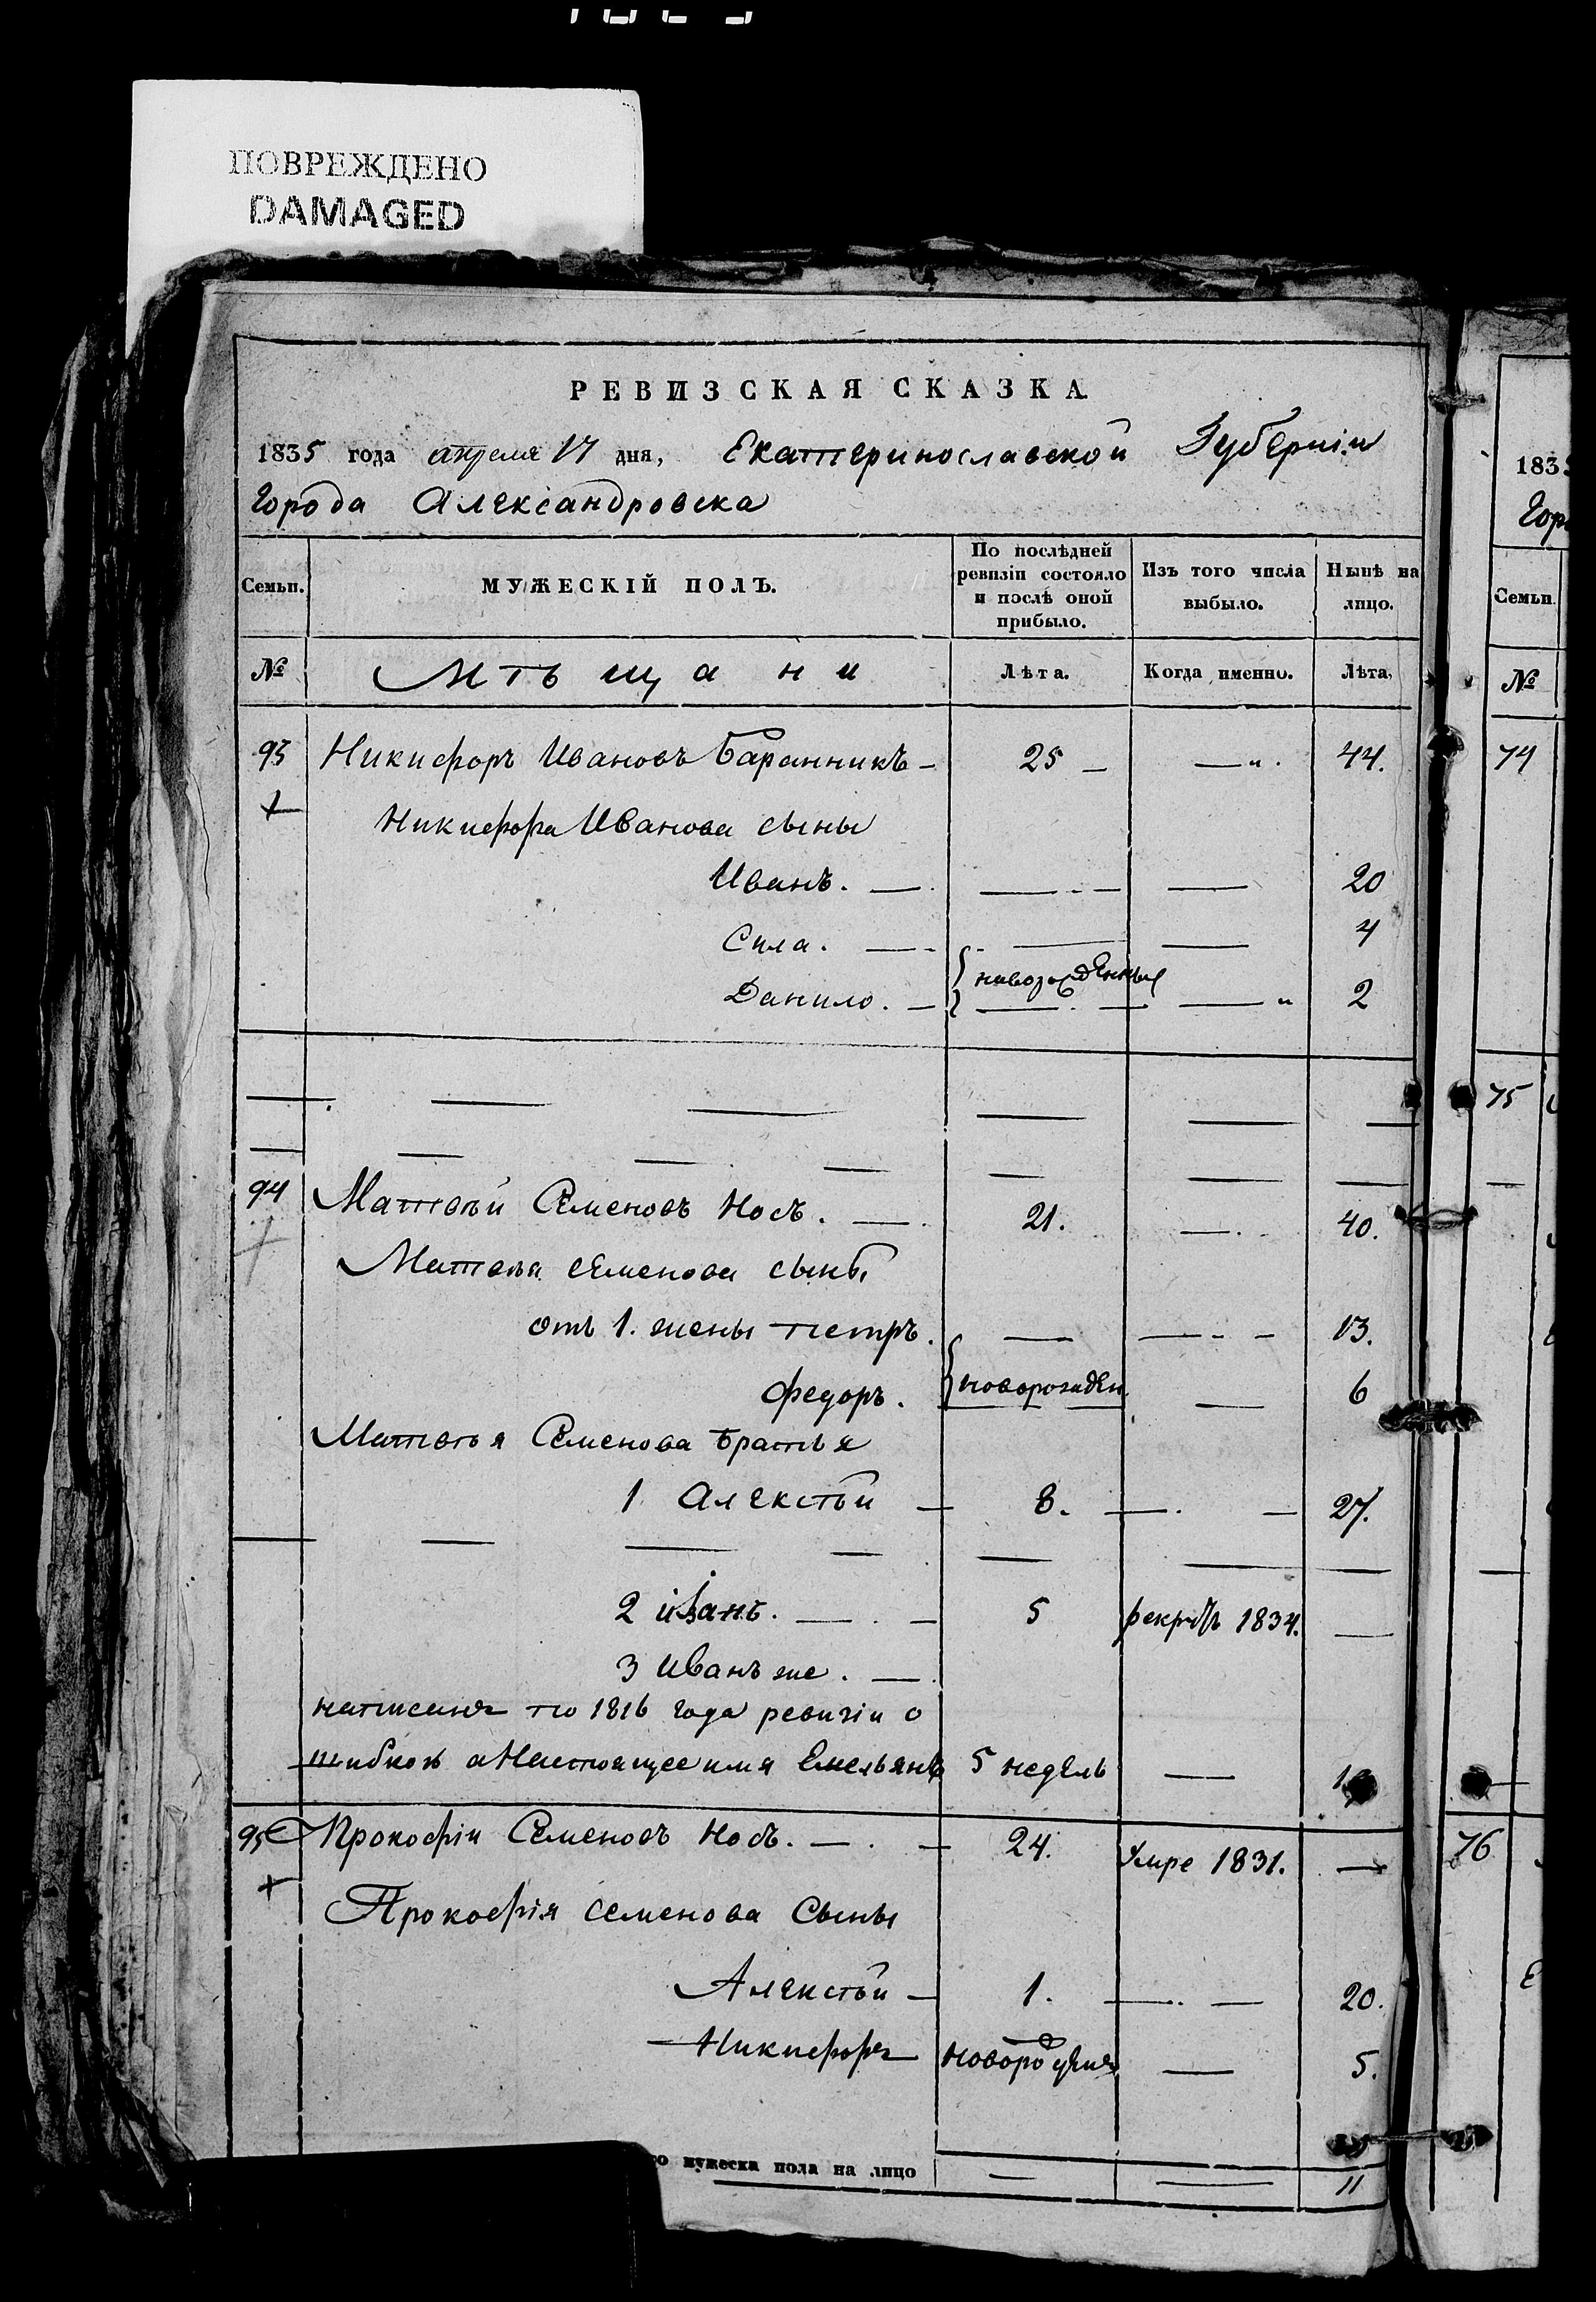 ПОВРЕЖДЕНО
DAMAGED
РЕВИЗСКАЯ СКАЗКА
1835 года апреля 17 дня, Екатеринославской Губерніи
Города Александровска
Семьи. МУЖЕСКІЙ ПОЛЪ. По послѣдней ревизіи состояло и послѣ оной прибыло. Изъ того числа выбыло. Нынѣ на лицо.
№ Мѣщани Лѣта. Когда именно. Лѣта.
93 Никифоръ Ивановъ Баранникъ — 25 — — " . 44.
Никифора Иванова сыны
Иванъ. — — — 20
Сила. — — — 4
Данило. — новорожденныя — " 2
94 Матвѣй Семеновъ Носъ. — 21. — 40.
Матвѣя Семенова сыны
отъ 1. жены петръ. — — 13.
Федоръ. новорожден. — 6
Матвѣя Семенова братья
1 Алексѣй — 8. — 27.
2 иванъ. — 5 рекрутъ 1834. —
3 Иванъ же. —
написанъ по 1816 года ревизіи о
шибкою а Настоящее имя Емельянъ 5 недель —
95 Прокофіи Семеновъ Носъ. — 24. Умре 1831. —
Прокофія Семенова Сыны
Алексѣй — 1. — 20.
Никифоръ — 5.
мужеска пола на лицо — — 11
1835
Гор
Семьи
№
74
75
76